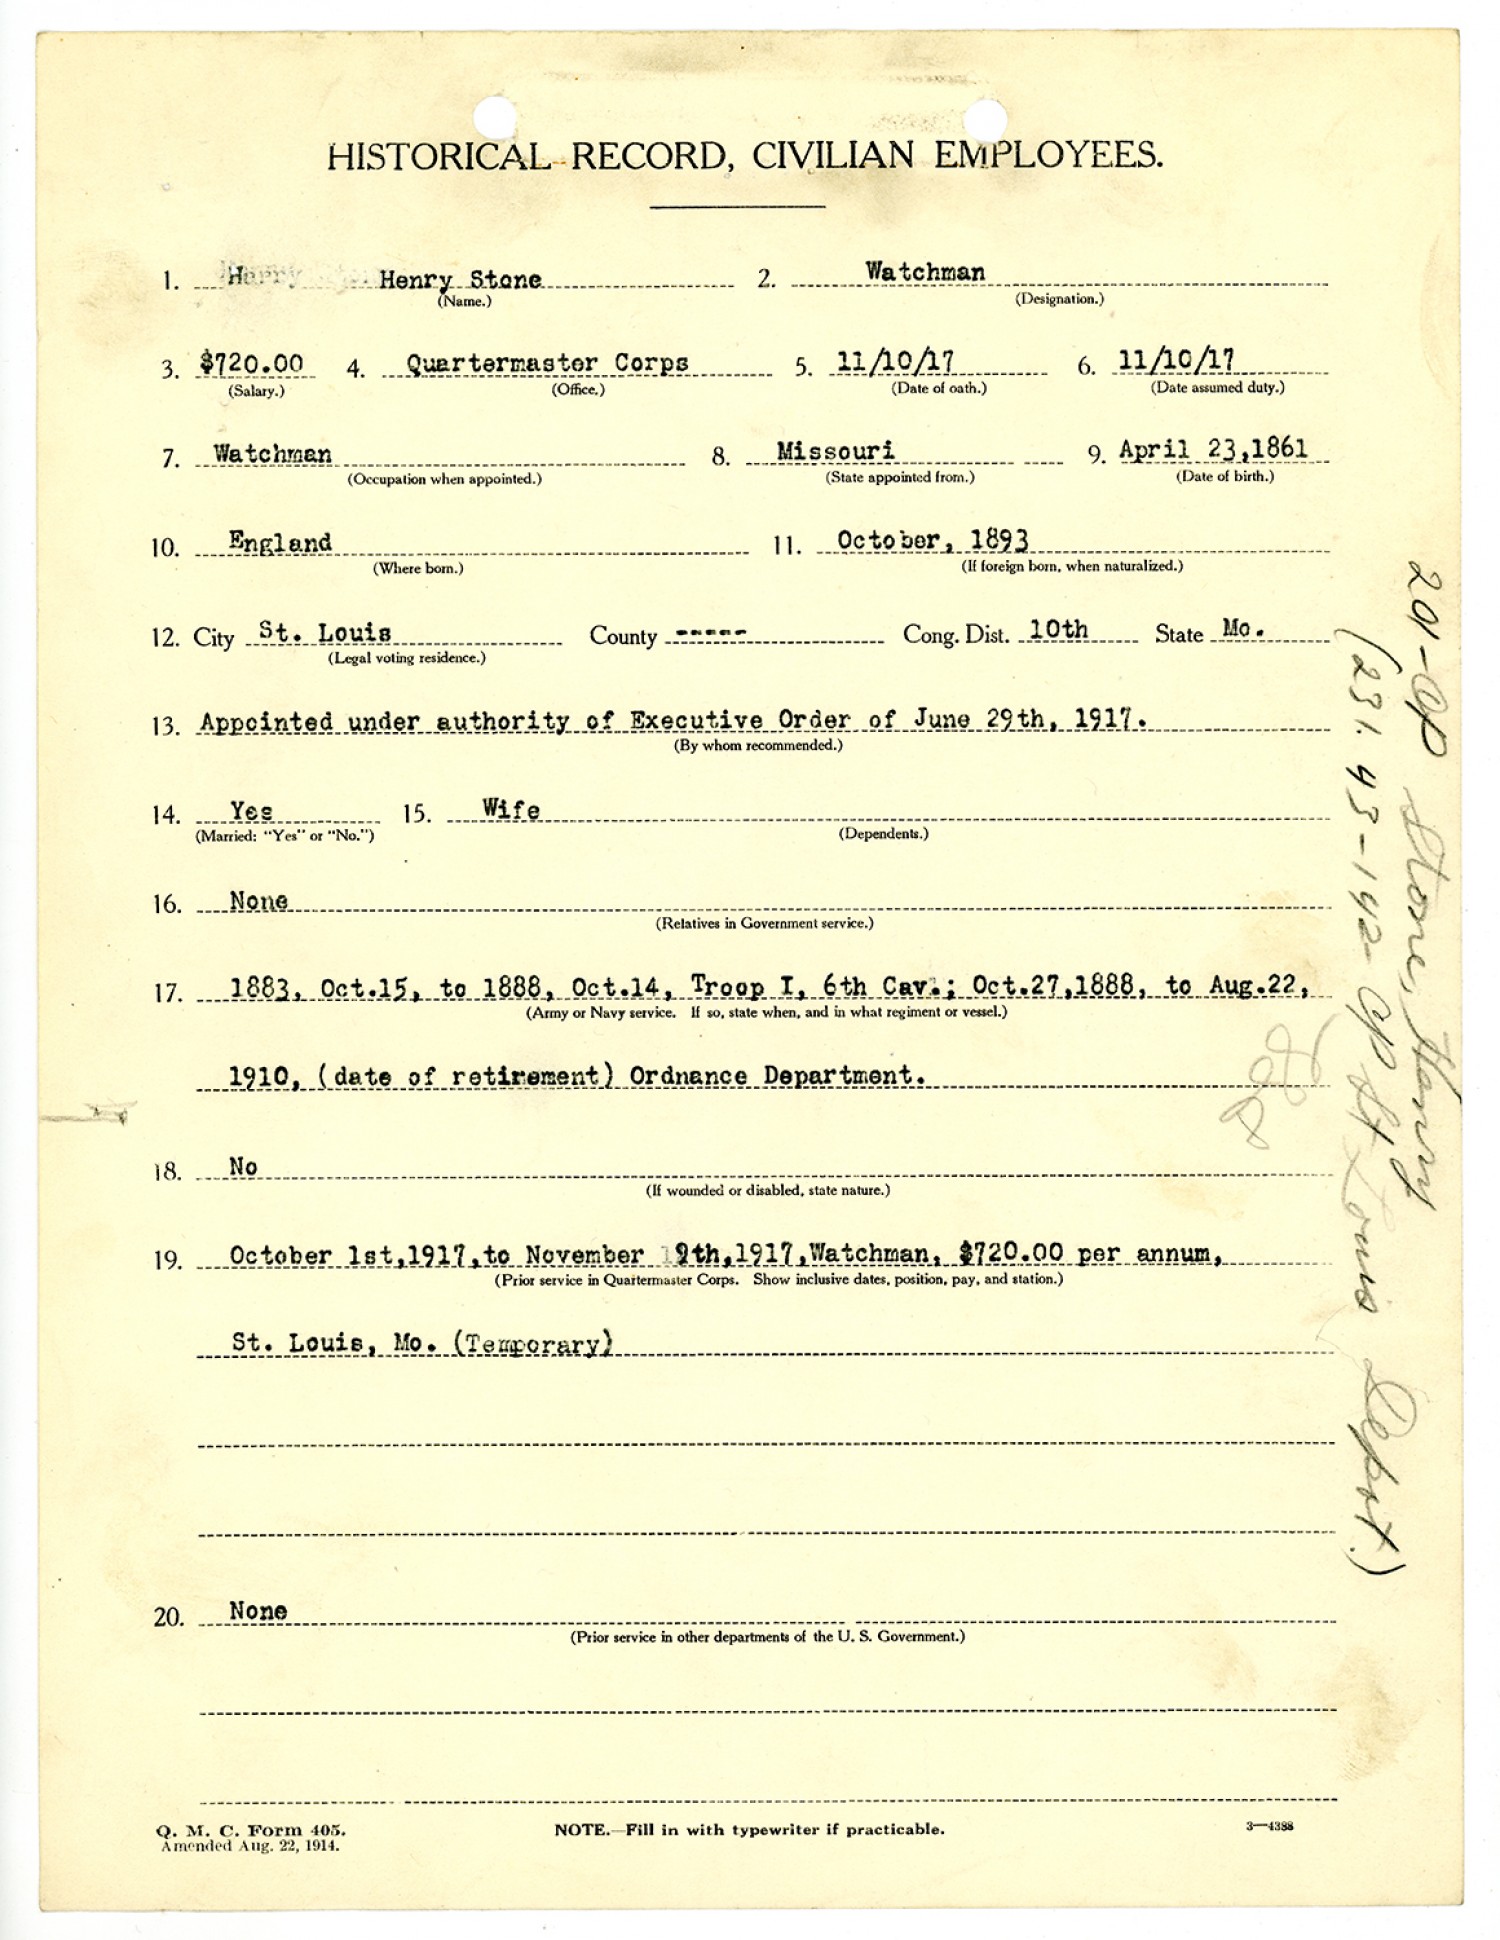 HISTORICAL RECORD, CIVILIAN EMPLOYEES.
1. Harry Henry Stone 2. Watchman
(Name.) (Designation.)
3. $720.00 4. Quartermaster Corps 5. 11/10/17 6. 11/10/17
(Salary.) (Office.) (Date of oath.) (Date assumed duty.)
7. Watchman 8. Missouri 9. April 23,1861
(Occupation when appointed.) (State appointed from.) (Date of birth.)
10. England 11. October, 1893
(Where born.) (If foreign born, when naturalized.)
12. City St. Louis County ----- Cong. Dist. 10th State Mo.
(Legal voting residence.)
13. Appointed under authority of Executive Order of June 29th, 1917.
(By whom recommended.)
14. Yes 15. Wife
(Married: "Yes" or "No.") (Dependents.)
16. None
(Relatives in Government service.)
17. 1883, Oct.15, to 1888, Oct.14, Troop I, 6th Cav.; Oct.27,1888, to Aug.22,
(Army or Navy service. If so, state when, and in what regiment or vessel.)
1910, (date of retirement) Ordnance Department.
18. No
(If wounded or disabled, state nature.)
19. October 1st,1917,to November 9th,1917,Watchman, $720.00 per annum,
(Prior service in Quartermaster Corps. Show inclusive dates, position, pay, and station.)
St. Louis, Mo. (Temporary)
20. None
(Prior service in other departments of the U. S. Government.)
Q. M. C. Form 405.
Amended Aug. 22, 1914.
NOTE.—Fill in with typewriter if practicable.
3—4388
201-CP Stone, Harry
(231.43-192-CP St Louis Depot.)